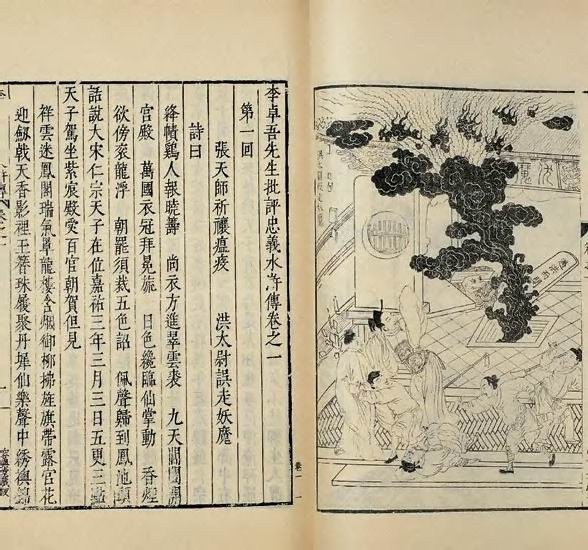 遇洪而開
李卓吾先生批評忠義水滸傳卷之一
第一回
張天師祈禳瘟疫　洪太尉誤走妖魔
詩曰
絳幘鷄人報曉籌　尚衣方進翠雲裘　九天閶闔開
宮殿　萬國衣冠拜冕旒　日色纔臨仙掌動　香煙
欲傍衮龍浮　朝罷須裁五色詔　佩聲歸到鳳池頭
話說大宋仁宗天子在位嘉祐三年三月三日五更三點
天子駕坐紫宸殿受百官朝賀但見
祥雲迷鳳閣瑞氣罩龍樓含烟御柳拂旌旗帶露宮花
迎劔戟天香影裡玉簪珠履聚丹墀仙樂聲中綉襖錦